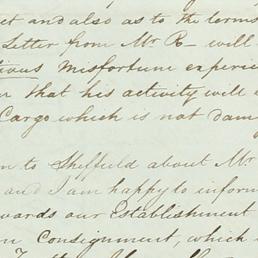 et and also as to the terms
Letter from Mr R— will
tious misfortune experie
r that his activity will
Cargo which is not dam
n to Sheffield about Mr
and I am happy to inform
wards our Establishment
n Consignment, which